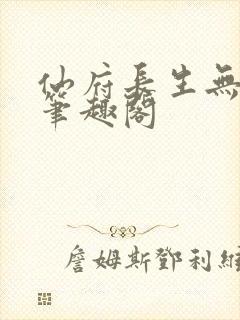 仙府長生無
筆趣閣
詹姆斯鄧利維